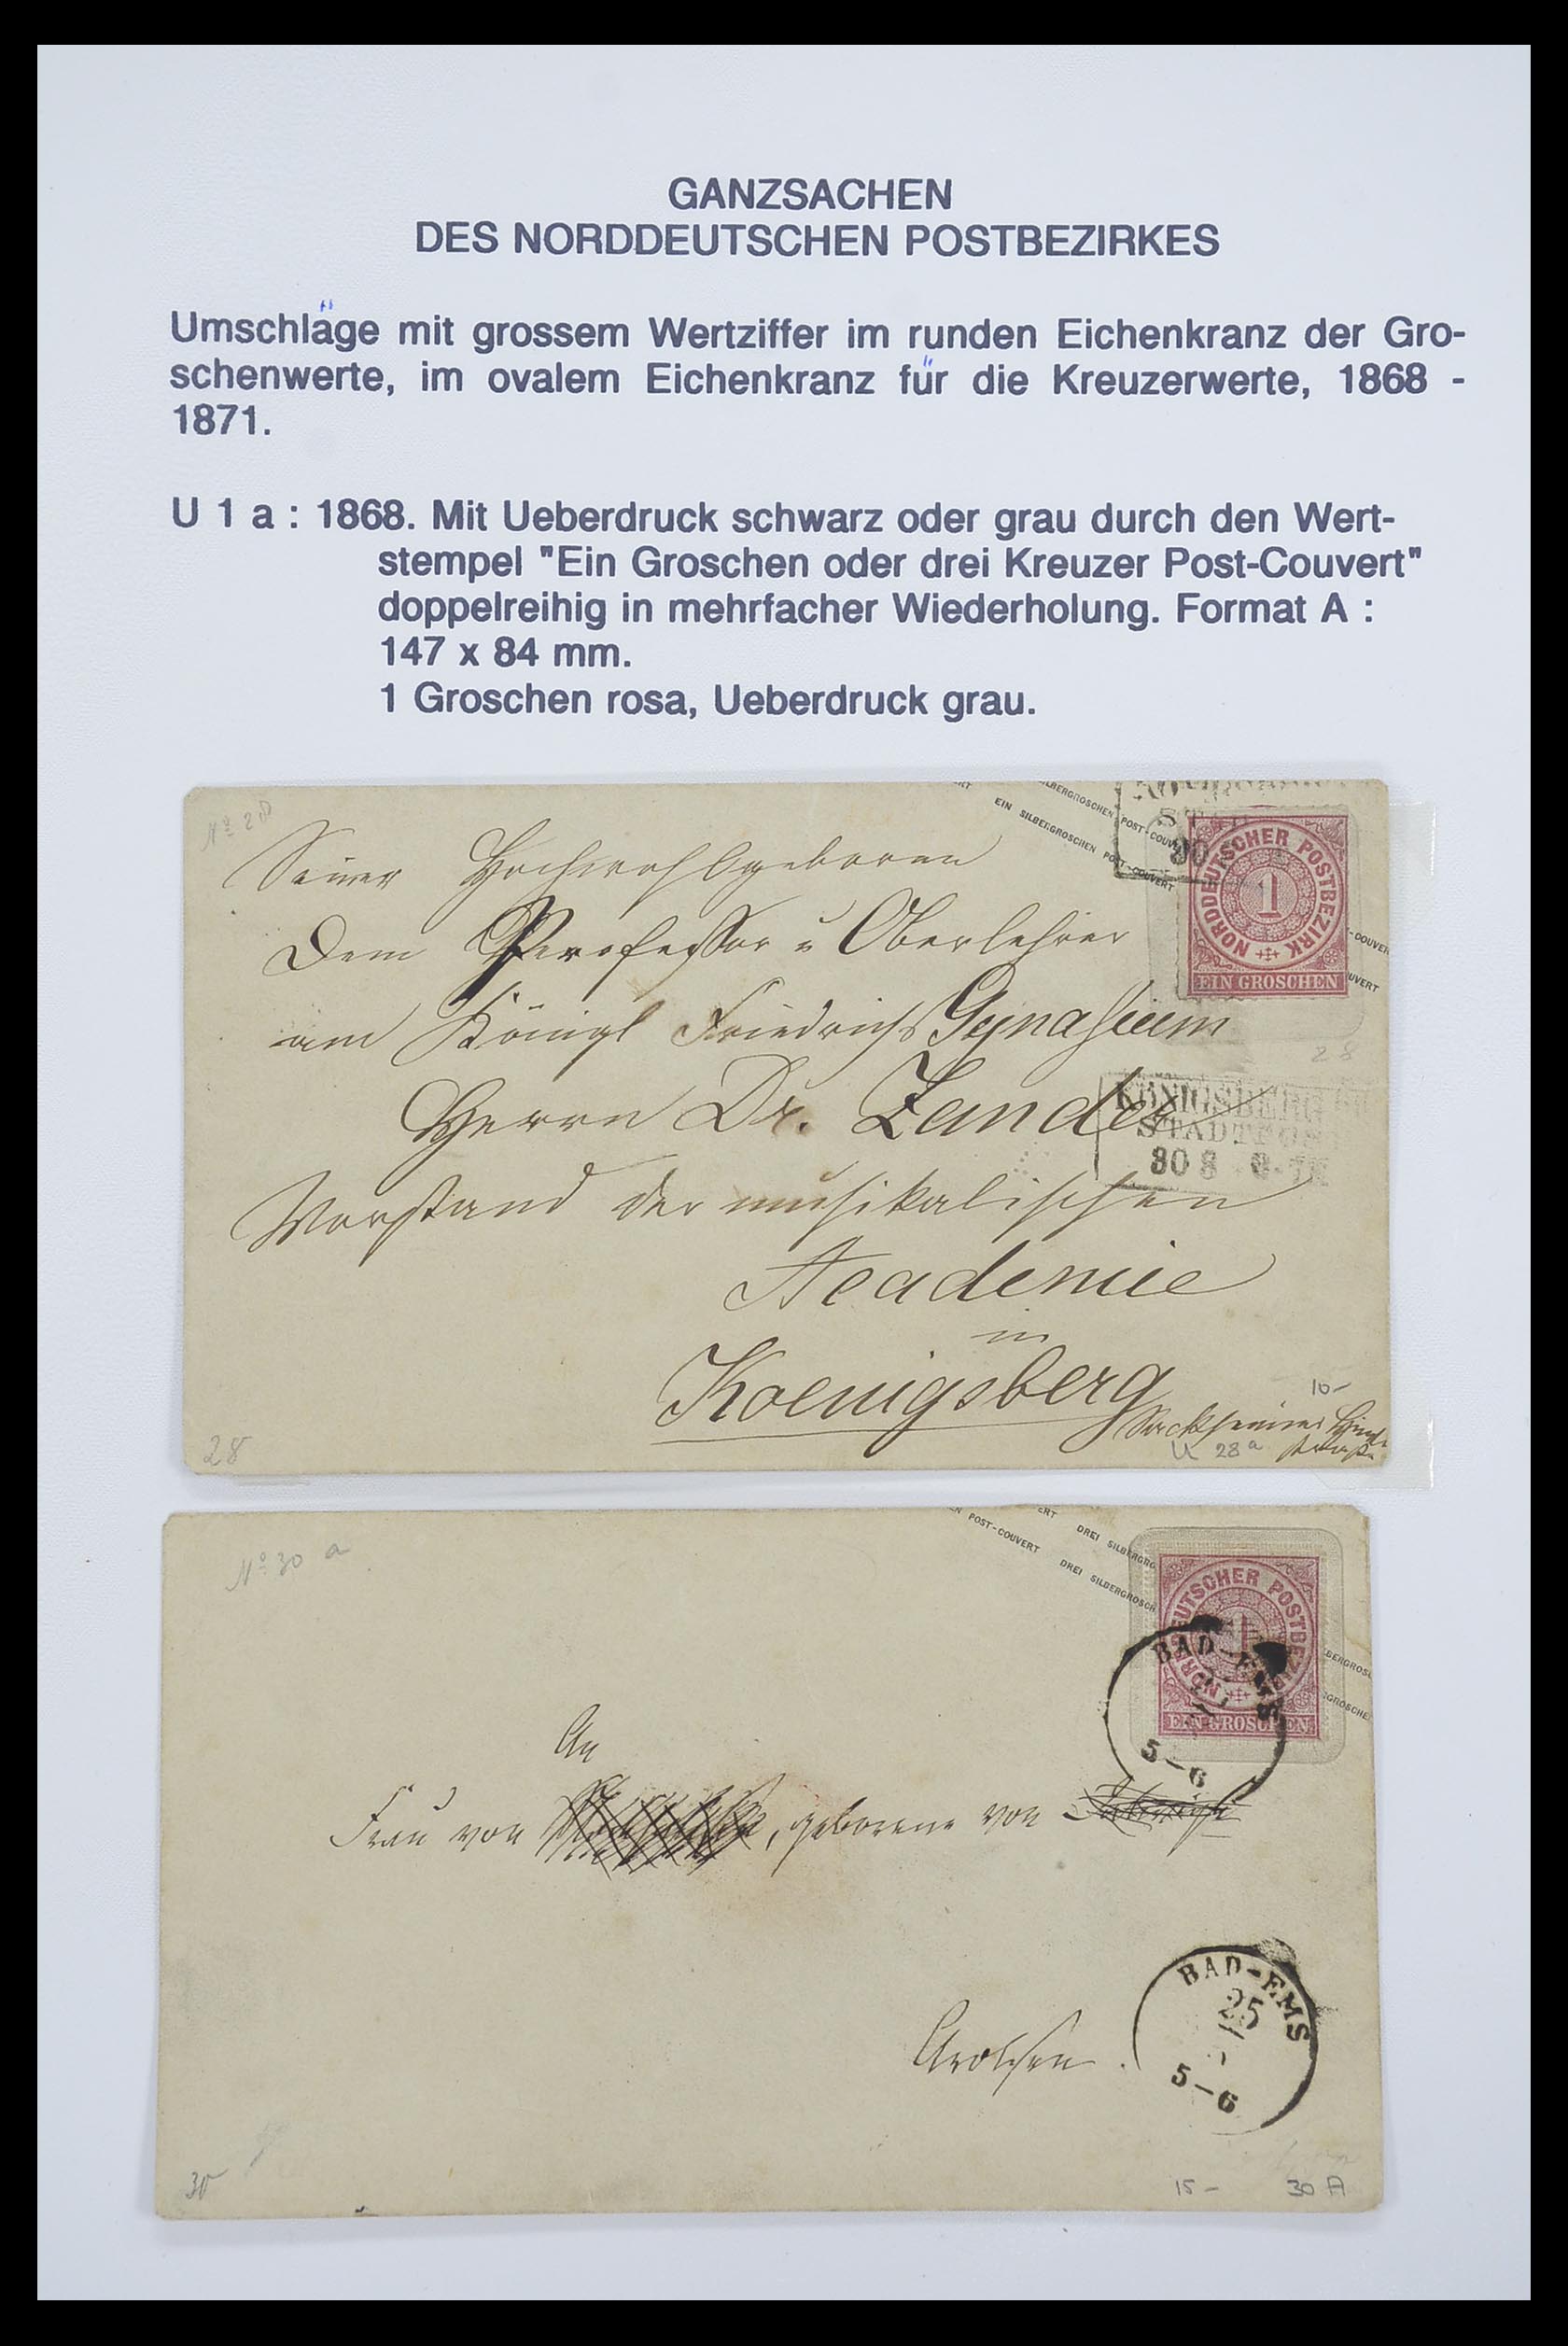 GANZSACHEN
DES NORDDEUTSCHEN POSTBEZIRKES
Umschläge mit grossem Wertziffer im runden Eichenkranz der Gro-
schenwerte, im ovalem Eichenkranz für die Kreuzerwerte, 1868 -
1871.
U 1 a : 1868. Mit Ueberdruck schwarz oder grau durch den Wert-
stempel "Ein Groschen oder drei Kreuzer Post-Couvert"
doppelreihig in mehrfacher Wiederholung. Format A :
147 x 84 mm.
1 Groschen rosa, Ueberdruck grau.
No 28
EIN SILBERGROSCHEN POST-COUVERT
NORDDEUTSCHER POSTBEZIRK
1
EIN GROSCHEN
Seiner Hochwohlgeboren
Dem Professor u Oberlehrer
am Königl Friedrichs Gymnasium
28
Herrn Dr. Zander
KÖNIGSBERG PR
STADTPOST
30 8
Vorstand der musikalischen
Academie
in
Koenigsberg
10-
28
U 28a
No 30 a
POST-COUVERT DREI SILBERGROSCH
NORDDEUTSCHER POSTBEZIRK
EIN GROSCHEN
BAD-EMS
5-6
An
Frau von , geborene von
Arolsen.
BAD-EMS
25
5-6
30
15-
30 A